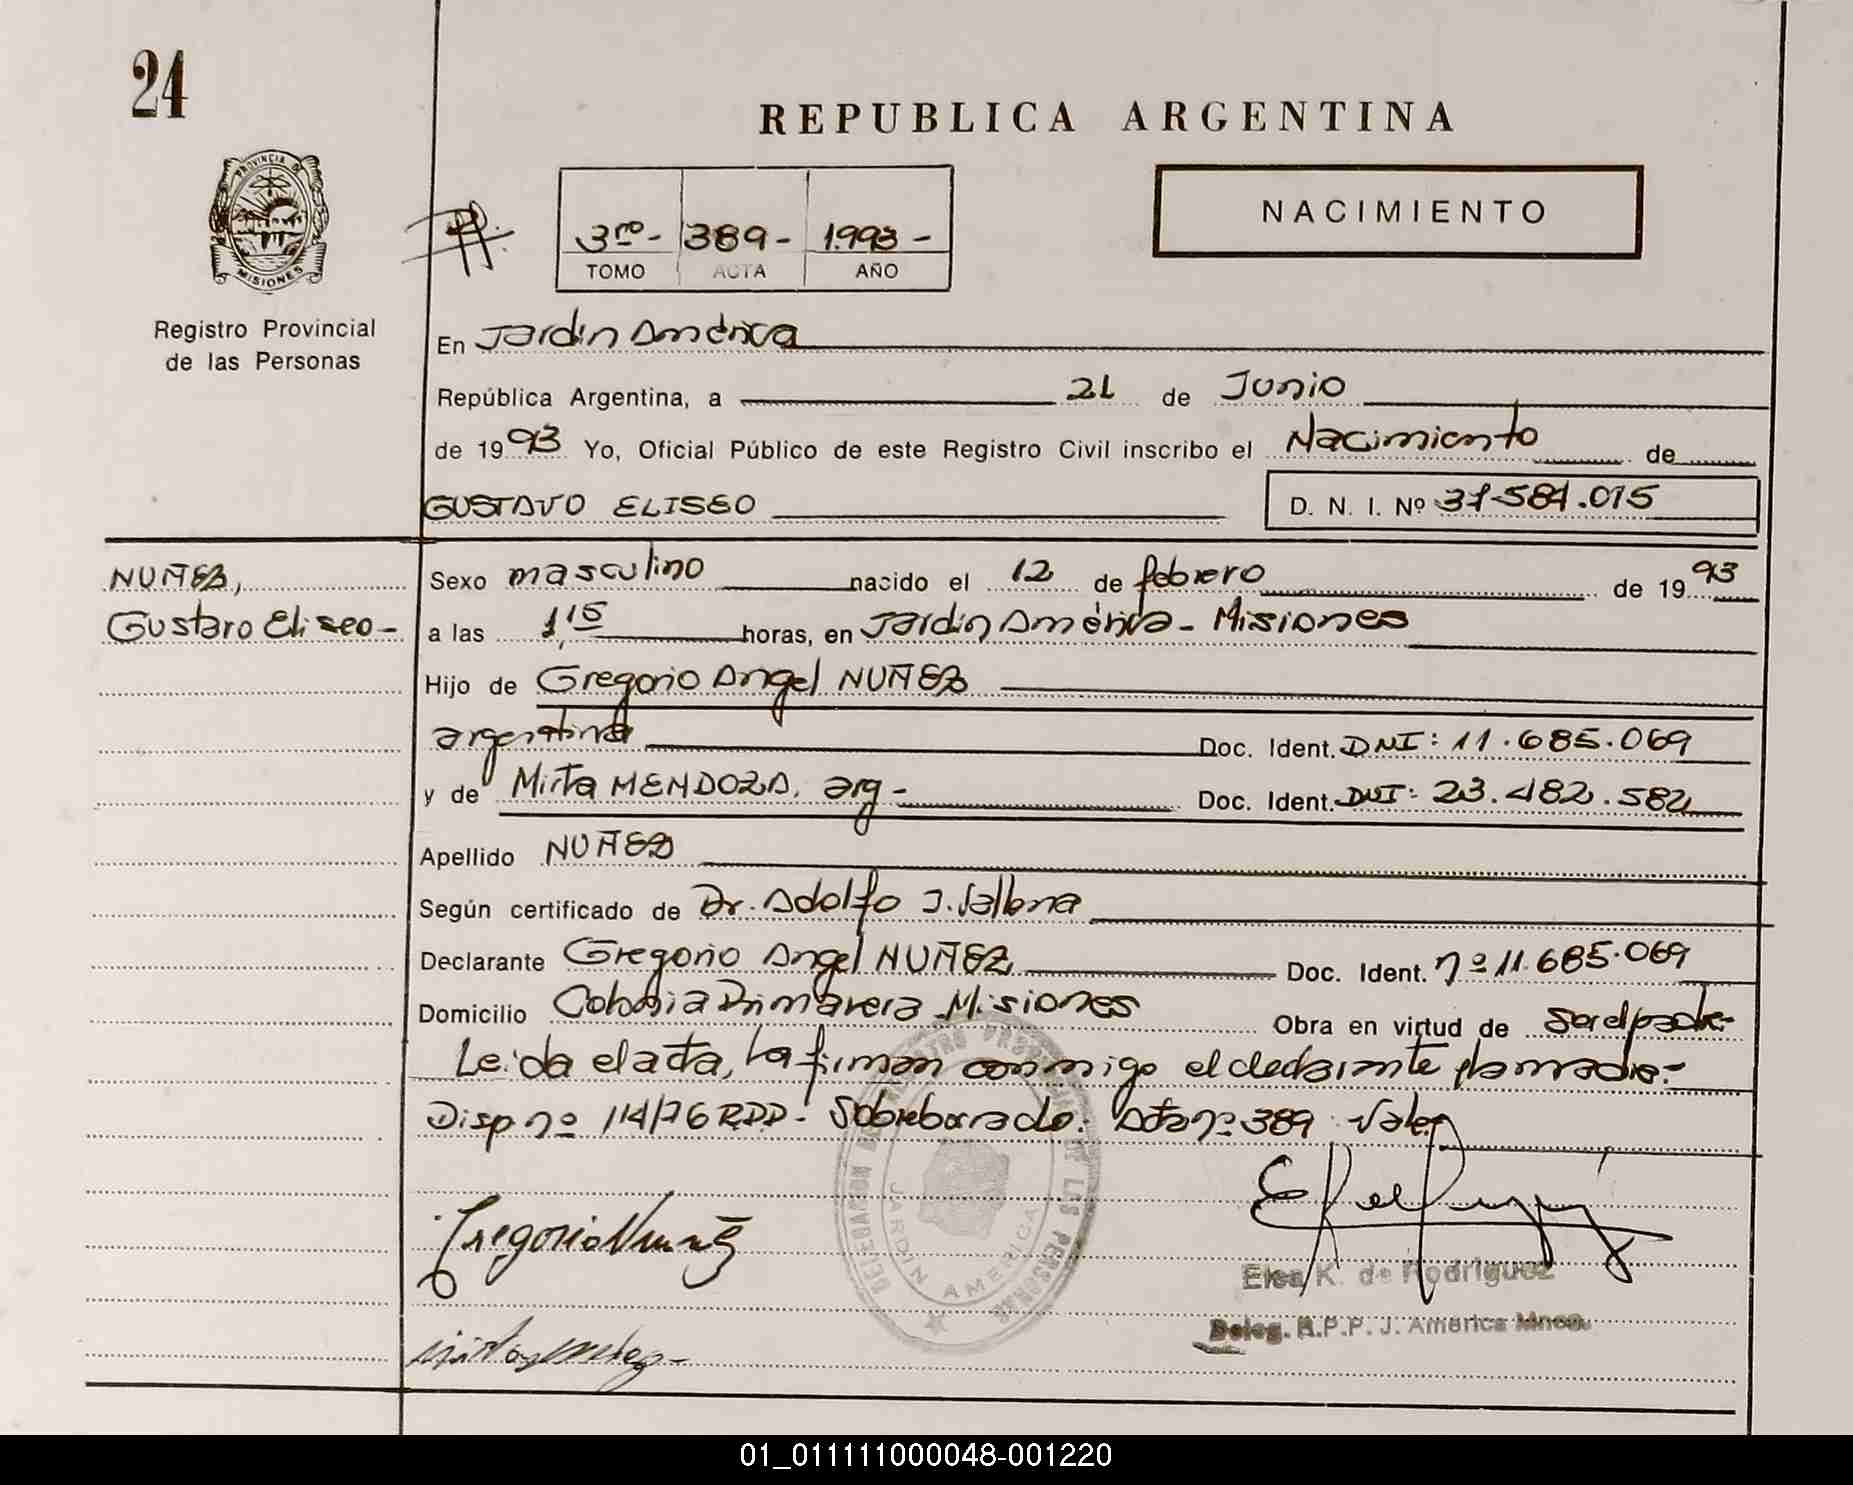 24
REPUBLICA ARGENTINA
PROVINCIA DE
MISIONES
NACIMIENTO
3ro- 389- 1.993-
TOMO ACTA AÑO
Registro Provincial
de las Personas
En Jardin América
República Argentina, a 21 de Junio
de 1993 Yo, Oficial Público de este Registro Civil inscribo el Nacimiento de
GUSTAVO ELISEO D. N. I. Nº 37.584.015
NUÑEZ,
Gustavo Eliseo-
Sexo masculino nacido el 12 de febrero de 1993
a las 1,15 horas, en Jardin América - Misiones
Hijo de Gregorio Angel NUÑEZ
argentina Doc. Ident. DNI: 11.685.069
y de Mirta MENDOZA, arg- Doc. Ident. DNI: 23.482.582
Apellido NUÑEZ
Según certificado de Dr. Adolfo J.
Declarante Gregorio Angel NUÑEZ Doc. Ident. nº 11.685.069
Domicilio Colonia Primavera Misiones Obra en virtud de ser el padre-
Leida el acta, la firman conmigo el declarante y la madre.-
Disp nº 114/76 RPP- Sobreborrado: Acta nº 389 Vale
DELEGACION REGISTRO PROVINCIAL DE LAS PERSONAS
JARDIN AMERICA
Gregorio Nuñez
Elsa K. de Rodriguez
Deleg. R.P.P. J. America Mnes.
01_011111000048-001220